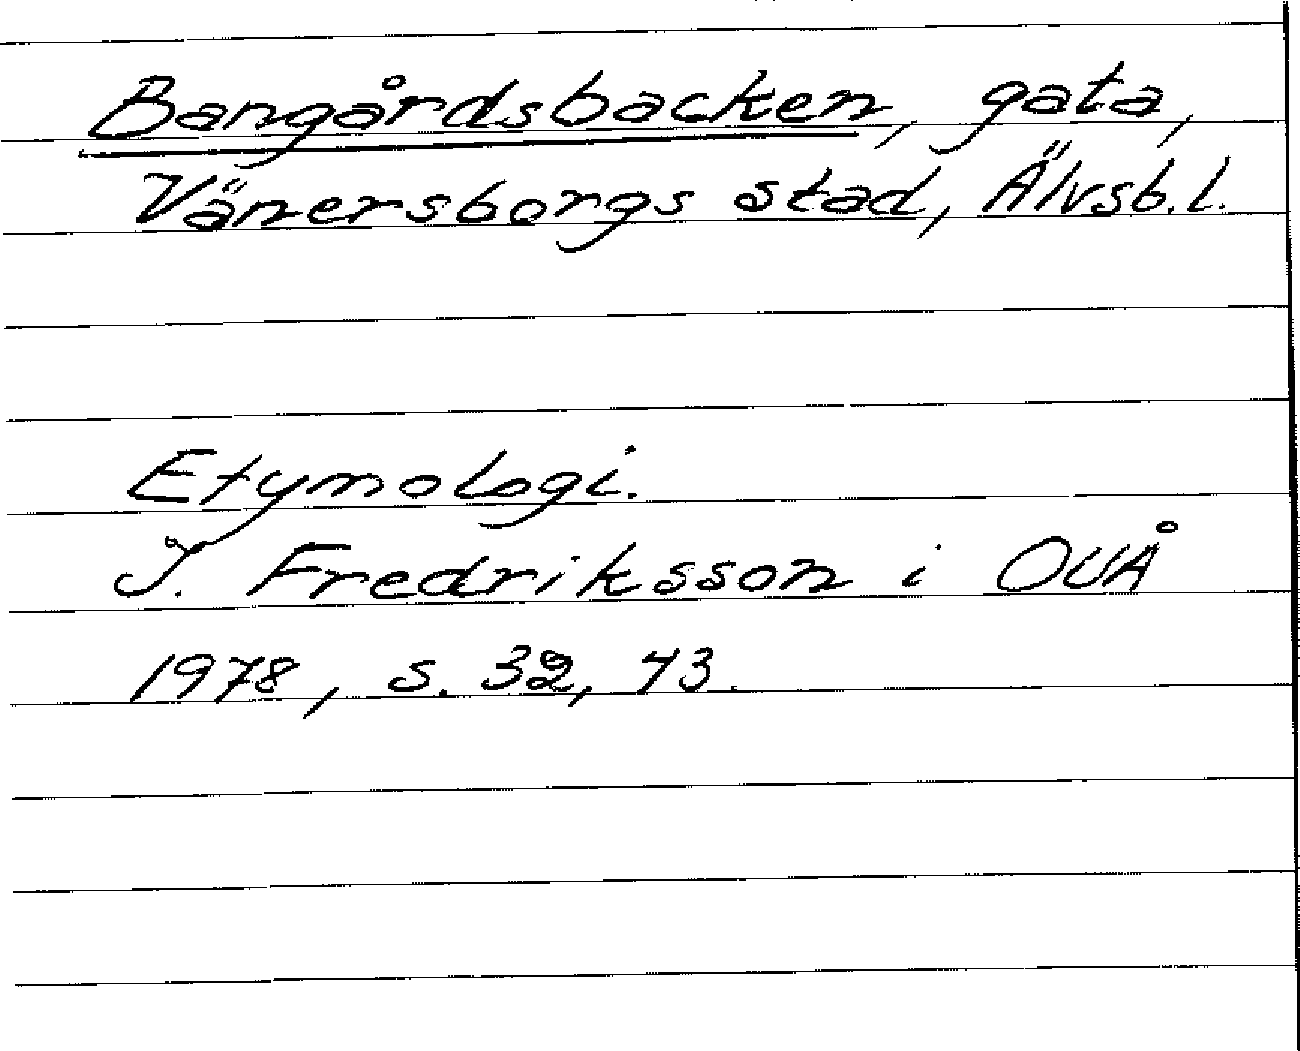 Bangårdsbacken, gata,
Vänersborgs stad, Älvsb. l.
Etymologi.
I. Fredriksson i OUÅ
1978, s. 32, 43.